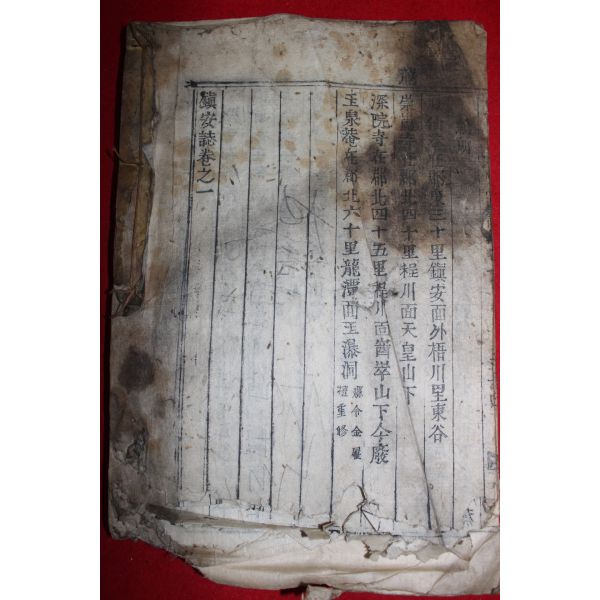 在郡東三十里鎭安面外梧川里東谷
寺在郡北四十里程川面天皇山下
深院寺在郡北四十五里程川面崷崒山下今廢
玉泉菴在郡北六十里龍潭面玉瀑洞 縣令金 禮重修
鎭安誌卷之一